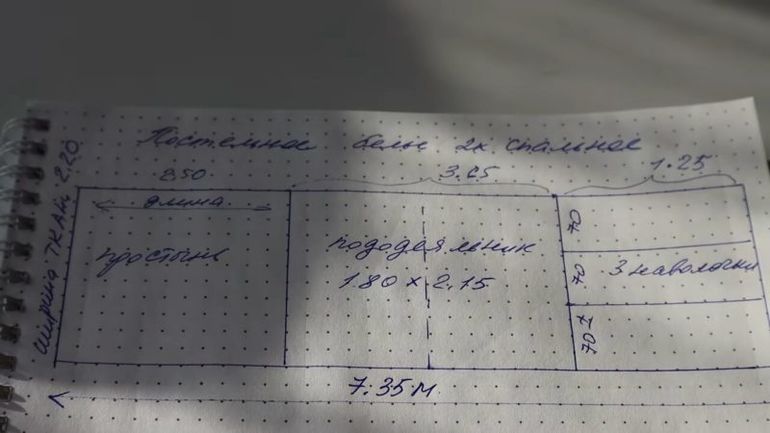 Постельное белье 2х спальное
ширина ткани 2.20
250
3.65
1.25
длина
простынь
пододеяльник
1.80 x 2.15
70
70
70
3 наволочки
7.35 м